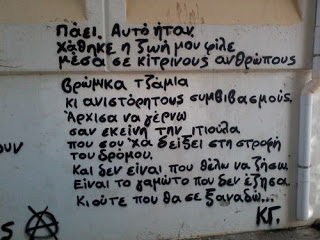 Πάει. Αυτό ήταν.
χάθηκε η ζωή μου φίλε
μέσα σε κίτρινους ανθρώπους
βρώμικα τζάμια
κι ανιστόρητους συμβιβασμούς.
Άρχισα να γέρνω
σαν εκείνη την ιτιούλα
που σου 'χα δείξει στη στροφή
του δρόμου.
Και δεν είναι που θέλω να ζήσω.
Είναι το γαμώτο που δεν έζησα.
Κι ούτε που θα σε ξαναδώ...
ΚΓ.
ουν